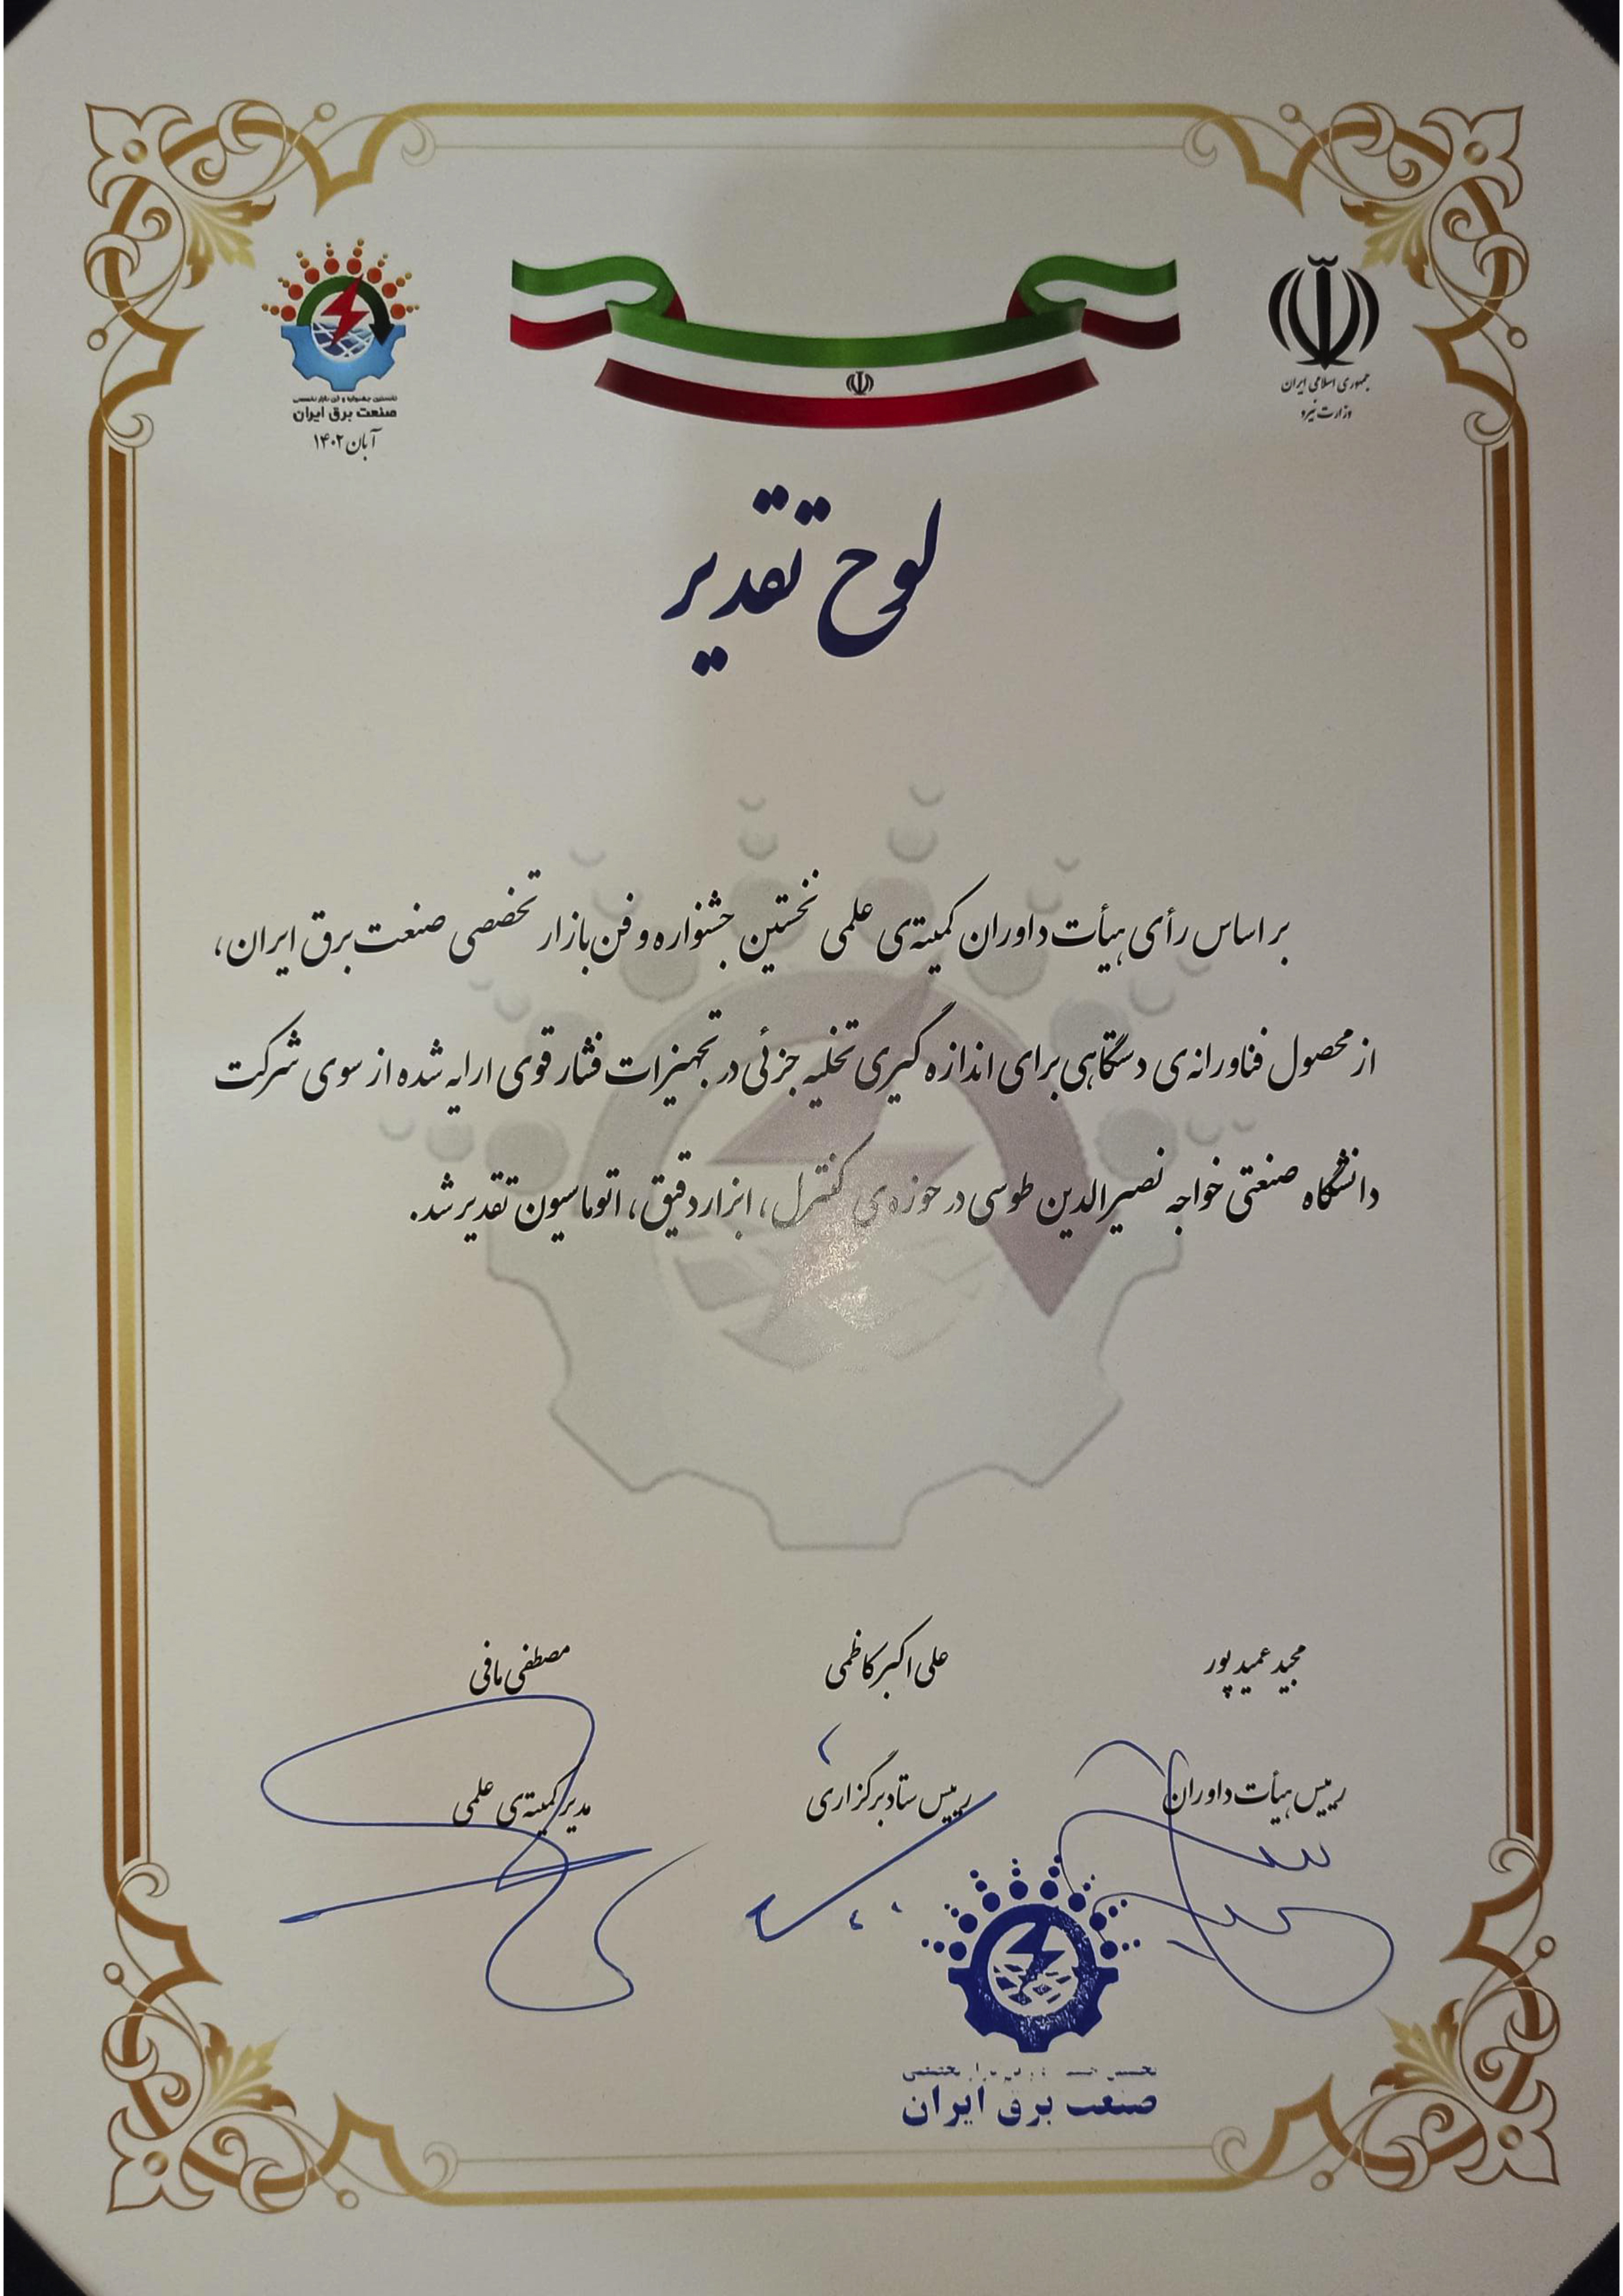 جمهوری اسلامی ایران
وزارت نیرو
نخستین جشنواره و فن بازار تخصصی
صنعت برق ایران
آبان ۱۴۰۲
لوح تقدیر
بر اساس رأی هیأت داوران کمیته‌ی علمی نخستین جشنواره و فن بازار تخصصی صنعت برق ایران،
از محصول فناورانه‌ی دستگاهی برای اندازه گیری تخلیه جزئی در تجهیزات فشار قوی ارایه شده از سوی شرکت
دانشگاه صنعتی خواجه نصیرالدین طوسی در حوزه‌ی کنترل، ابزار دقیق، اتوماسیون تقدیر شد.
مجید عمیدپور
رییس هیأت داوران
علی اکبر کاظمی
رییس ستاد برگزاری
مصطفی مافی
مدیر کمیته‌ی علمی
صنعت برق ایران